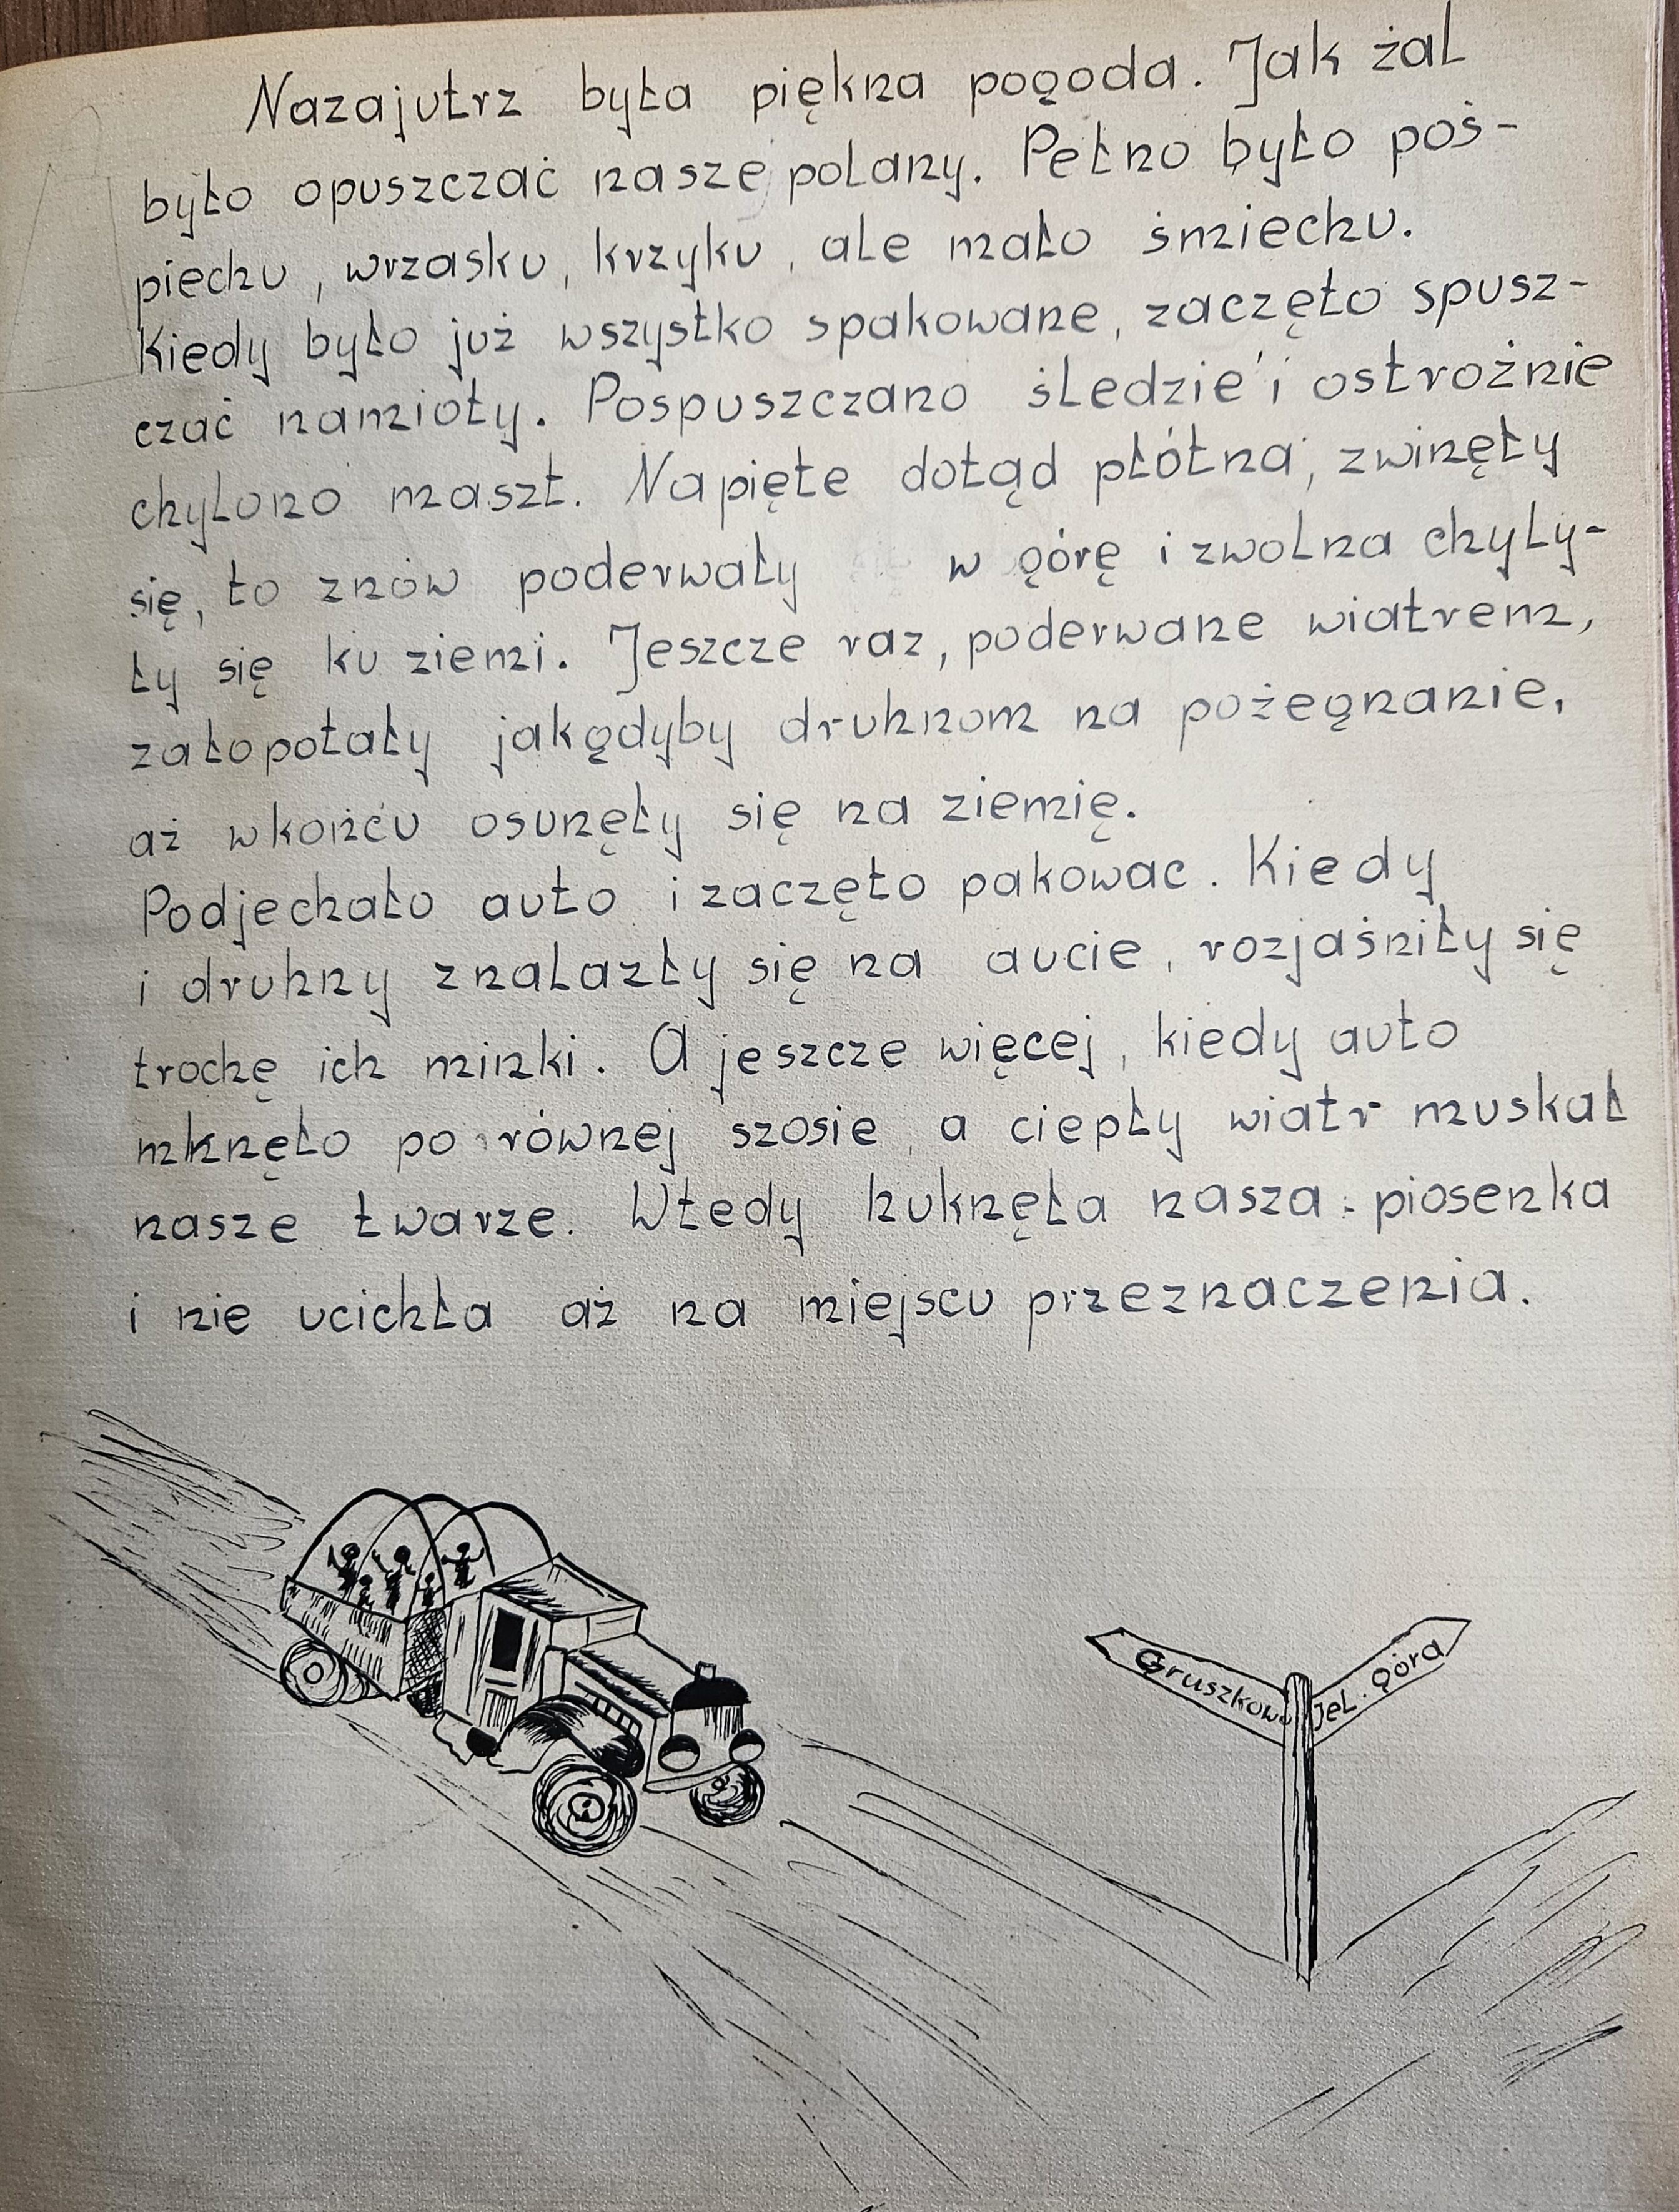 Nazajutrz była piękna pogoda. Jak żal
było opuszczać nasze polany. Pełno było poś-
piechu, wrzasku, krzyku, ale mało śmiechu.
Kiedy było już wszystko spakowane, zaczęto spusz-
czać namioty. Pospuszczano śledzie i ostrożnie
chylono maszt. Napięte dotąd płótna, zwinęły
się, to znów poderwały w górę i zwolna chyly-
ły się ku ziemi. Jeszcze raz, poderwane wiatrem,
załopotały jakgdyby druhnom na pożegnanie,
aż wkońcu osunęły się na ziemię.
Podjechało auto i zaczęto pakowac. Kiedy
i druhny znalazły się na aucie, rozjaśniły się
trochę ich minki. A jeszcze więcej, kiedy auto
mknęło po równej szosie, a ciepły wiatr muskał
nasze twarze. Wtedy huknęła nasza piosenka
i nie ucichła aż na miejscu przeznaczenia.
Gruszkow
Jel. Góra